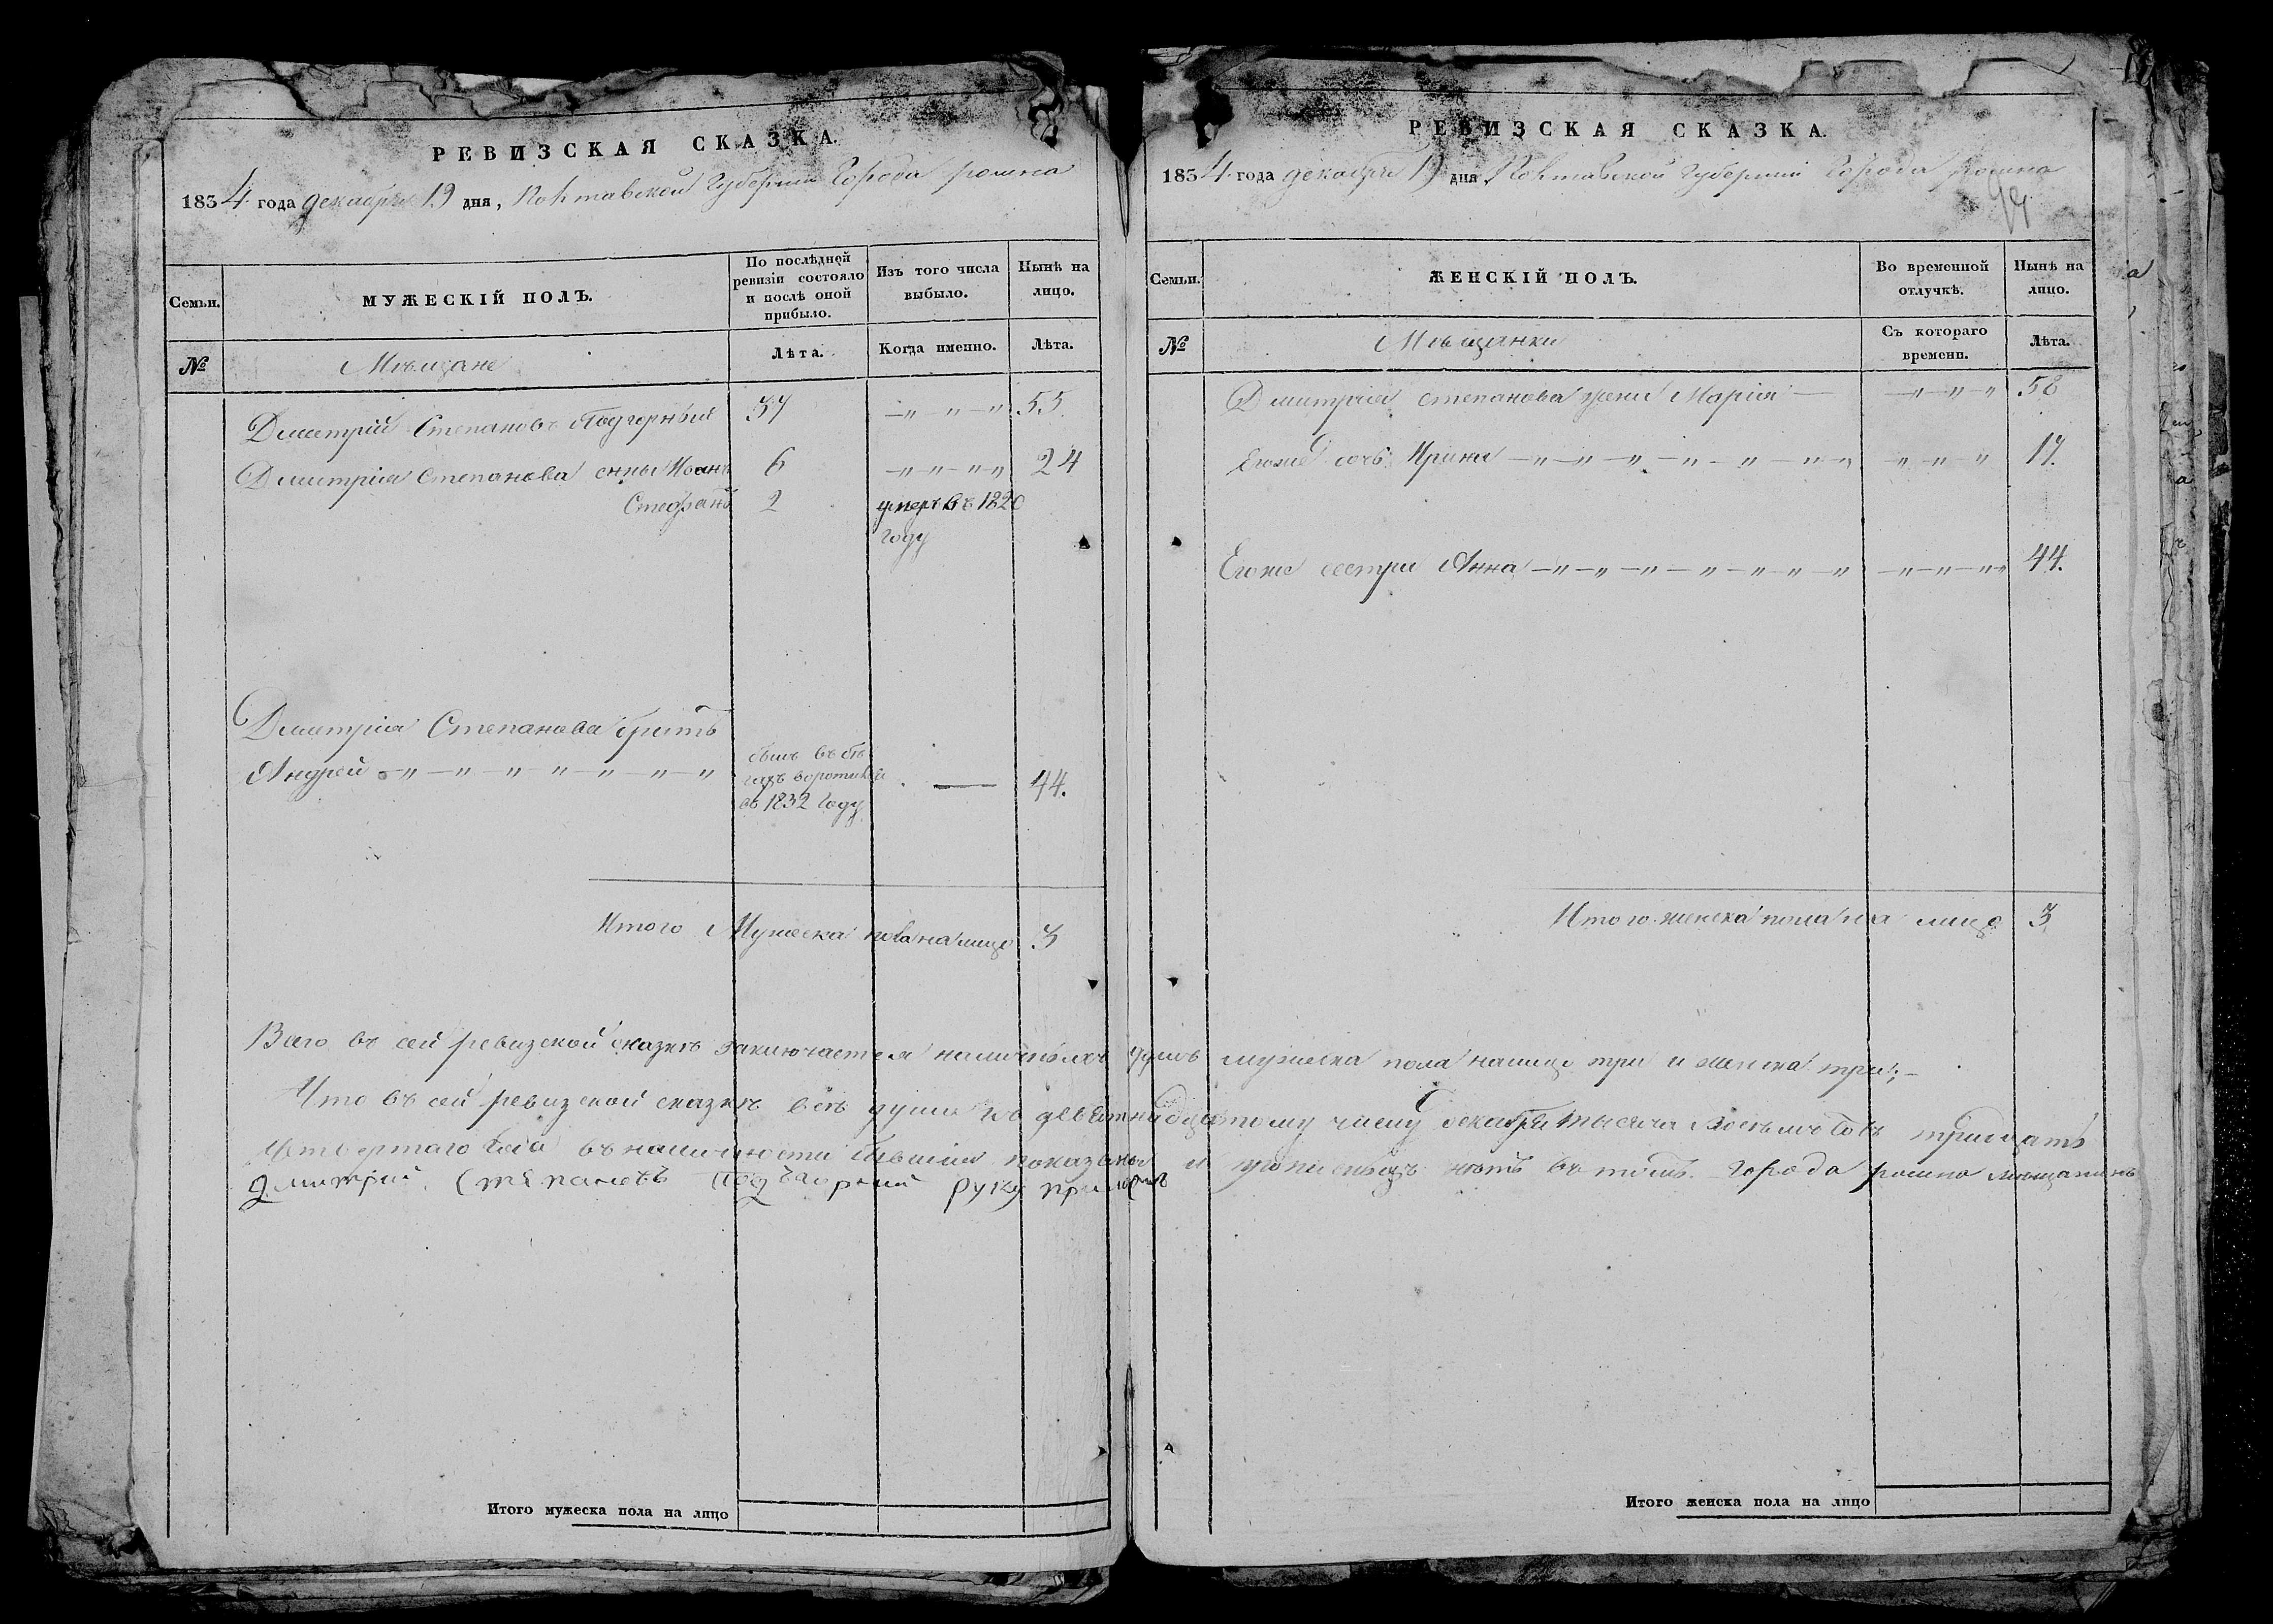 РЕВИЗСКАЯ СКАЗКА.
1834 года декабря 19 дня, Полтавской Губернии Города ромна
Семьи.
МУЖЕСКІЙ ПОЛЪ.
По послѣдней ревизіи состояло и послѣ оной прибыло.
Изъ того числа выбыло.
Нынѣ на лицо.
№
Мѣщане
Лѣта.
Когда именно.
Лѣта.
Дмитрій Степановъ Подгорный 37 —„ „ —„ 55.
Дмитрія Степанова сины Иванъ 6 —„—„—„„ 24
Стефанъ 2 умеръ въ 1820
году
Дмитрія Степанова братъ
Андрей —„—„—„—„—„—„—„
бывъ въ бѣ
гахъ
въ 1832 году
— 44.
Итого Мужеска пола на лицо 3
РЕВИЗСКАЯ СКАЗКА.
1834 года декабря 19 дня, Полтавской Губерніи Города ромна
Семьи.
ЖЕНСКІЙ ПОЛЪ.
Во временной отлучкѣ.
Нынѣ на лицо.
№
Мѣщанки
Съ котораго времени.
Лѣта.
Дмитрія степанова жена Марія — —„—„„ 58
Егоже дочь Ирина —„—„—„—„—„—„„ „—„—„ 17.
Егоже сестра Анна —„—„—„—„—„—„—„ —„—„—„„ 44.
Итого женска пола на лицо 3
Всего въ сей ревизской сказкѣ заключается наличныхъ душъ мужеска пола налицо три и женска три;—
Что въ сей ревизской сказкѣ всѣ души по девятнадцатому числу декабря тысяча Восемъ сотъ тридцатъ
четвертаго года въ наличности бывшия показаны и прописныхъ нѣтъ въ томъ. Города ромна мещанинъ
Дмитрий Степановъ Подгорний руку приложилъ
Итого мужеска пола на лицо
Итого женска пола на лицо